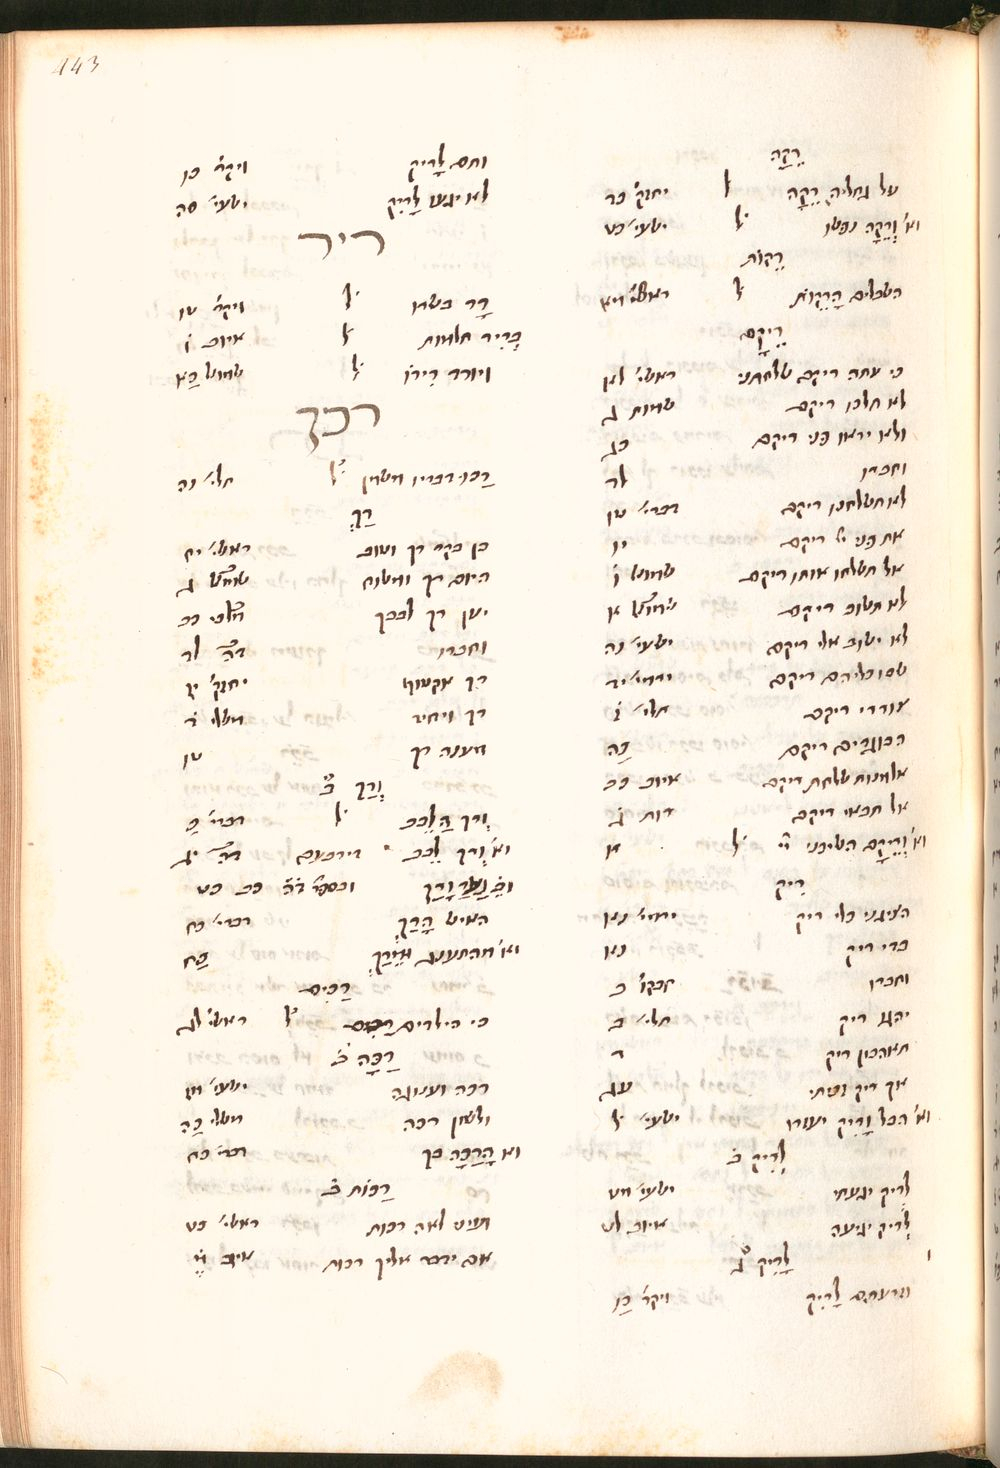 443
רֵקָה
על נחליה רֵקָה ל יחזק׳ כד
וא׳ וְרֵקָה נפשו ל ישעי׳ כט
רֵקוֹת
השבלים הָרֵקוֹת ל ראשי׳ מא
רֵיקָם
כי עתה ריקם שלחתני ראשי׳ לא
לא תלכו ריקם שמות ג
ולא יראו פני ריקם כג
וחברו לד
לא תשלחנו ריקם דברי׳ טו
את פני יי ריקם יו
אל תשלחו אותו ריקם שמוש׳ ו
לא תשוב ריקם שמוש׳ א
לא ישוב אלי ריקם ישעי׳ נה
שבו כליהם ריקם ירמי׳ יד
צוררי ריקם תלי׳ ז
הבוגדים ריקם כה
אלמנות שלחת ריקם איוב כב
אל תבואי ריקם רות ג
וא׳ וְרֵיקָם השיבני יי ל א
רִיק
הציגני כלי ריק ירמי׳ נא
בדי ריק נא
וחברו חבקו׳ ב
יהגו ריק תלי׳ ב
תאהבון ריק ד
אך ריק זכיתי עג
וא׳ הבל וָרִיק יעזרו ישעי׳ ל
לְרִיק ב
לריק יגעתי ישעי׳ מט
לְרִיק יגיעה איוב לט
לָרִיק ג
וזרעתם לָרִיק ויקר׳ כו
ותם לָרִיק ויקר׳ כו
לא יגעו לָרִיק ישעי׳ סה
ריר
רָר בשרו ל ויקר׳ טו
בְּרִיר חלמות ל איוב ו
ויורד רִירוֹ ל שמוש׳ כא
רכך
רַכּוּ דבריו משמן ל תלי׳ נה
רַךְ
בן בקר רך וטוב ראשי׳ יח
היום רך ומשוח שמוש׳ ג
יען רך לבבך מלכי׳ כב
וחברו דה׳ לד
רך אקטוף יחזק׳ יז
רך ויחיד משלי ד
מענה רך טו
וְרַךְ ב
וְרך הַלֵּבָב ל דברי׳ כ
וא׳ וְרך לֵבָב דירבעם דה׳ יג
נַעַר וָרָךְ ובספר׳ דה׳ כב כט
האיש הָרַךְ דברי׳ כח
וא׳ מהתענג וּמֵרֹךְ כח
רַכִּים
כי הילדים רַכִּים ל ראשי׳ לג
רַכָּה ב
רכה וענוגה ישעי׳ מז
ולשון רכה משלי כה
וא הָרַכָּה בך דברי׳ כח
רַכּוֹת ב
ועיני לאה רכות ראשי׳ כט
אם ידבר אליך רכות איוב מ